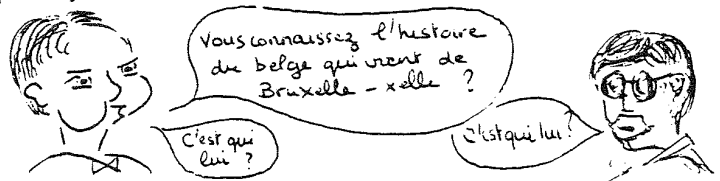 Vous connaissez l'histoire
du belge qui vient de
Bruxelle - xelle ?
C'est qui
lui ?
C'est qui lui ?